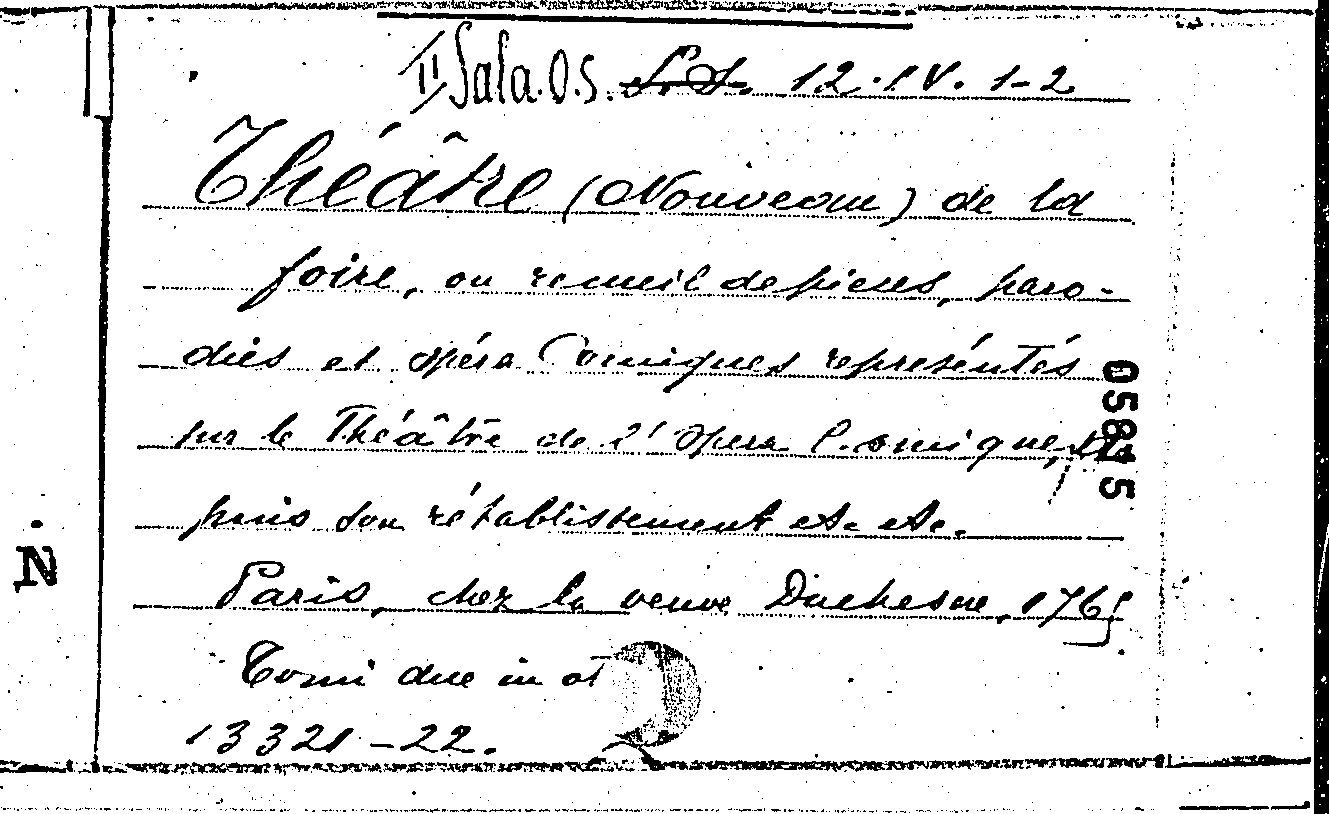 II Sala. O.S. S.S. 12.IV. 1-2
Théâtre (Nouveau) de la
foire, ou recueil de pieces, paro-
dies et opéra Comiques représéntés
sur le Théâtre de l'Opera Comique, de
puis son rétablissement etc etc.
Paris, chez la veuve Duchesne, 1765
Tomi due in 8
13321-22.
05815
N